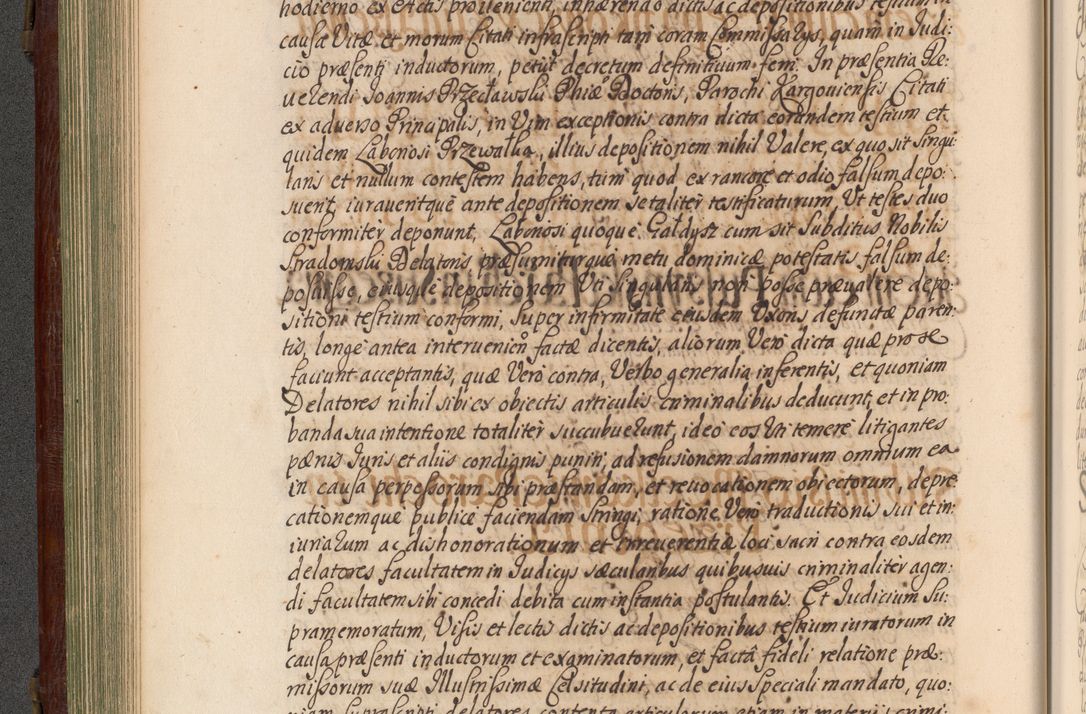 hodierno ex Actis provenienti, inhærendo dictis ac depositionibus testium in
causa Vitæ et morum Citati infrascripti tam coram Commissarys, quam in Judi:
cio præsenti inductorum, petyt decretum definitiuum ferri. In præsentia Re:
uerendi Joannis Przecławski Phiæ Doctoris, Parochi Kargouiensis Citati
ex aduerso Principalis, in Vim exceptionis contra dicta eorundem testium et
quidem Laboriosi Przewałka, illius depositionem nihil Valere, ex quo sit singu:
laris et nullum contestem habens, tum quod ex rancore et odio falsum depo:
suerit, iurauentquè ante depositionem se taliter testificaturum, Ut testes duo
conformitèr deponunt, Laboriosi quoque Gałdysz cum sit Subditus Nobilis
Stradomski Delatoris præsumiturquè metu dominicæ potestatis falsum de:
posuisse, eiusquè depositionem Uti singularis non posse præualere depo:
sitioni testium conformi, super infirmitate eiusdem Uxoris defunctæ paren:
tis, longè antea interuenien factæ dicentis, aliorum Verò dicta quæ pro se
faciunt acceptantis, quæ Verò contra, Verbo generalia inferentis, et quoniam
Delatores nihil sibi ex obiectis articulis criminalibus deducunt, et in pro:
banda sua intentione totalitèr succubuerunt, ideò eos Uti temerè litigantes
pœnis Juris et aliis condignis puniri, ad refusionem damnorum omnium ea
in causa perpessorum sibi præstandam, et reuocationem obiectorum, depre:
cationemquè publicè faciendam stringi, ratione Verò traductionis sui et in:
iuriarum ac dishonorationum et irreuerentiæ loci sacri contra eosdem
delatores facultatem in Judicys sæcularibus quibusuis criminalitèr agen:
di facultatem sibi concedi debita cum instantia postulantis. Et Judicium su:
pramemoratum, Visis et lectis dictis ac depositionibus testium iuratorum in
causa præsenti inductorum et examinatorum, et factâ fideli relatione præ:
missorum suæ Illustrissimæ Celsitudini, ac de eius speciali mandato, quo:
niam suprascripti delatores contenta articulorum etiam in materiis crimi: